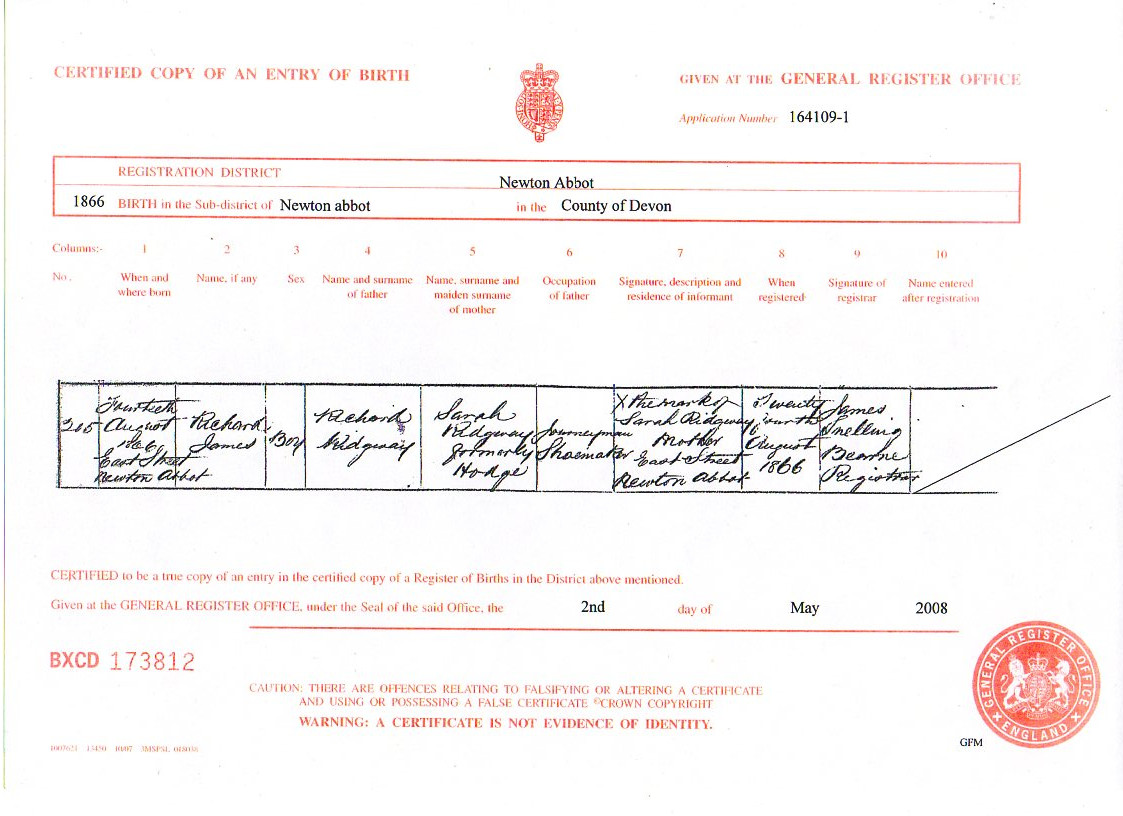 CERTIFIED COPY OF AN ENTRY OF BIRTH
GIVEN AT THE GENERAL REGISTER OFFICE
Application Number 164109-1
REGISTRATION DISTRICT
Newton Abbot
1866 BIRTH in the Sub-district of Newton abbot in the County of Devon
Columns:- 1 2 3 4 5 6 7 8 9 10
No. When and where born
Name, if any
Sex
Name and surname of father
Name, surname and maiden surname of mother
Occupation of father
Signature, description and residence of informant
When registered
Signature of registrar
Name entered after registration
205
Fourteeth
August
1866
East Street
Newton Abbot
Richard
James
Boy
Richard
Ridgway
Sarah
Ridgway
formerly
Hodge
Journeyman
Shoemaker
X The mark of
Sarah Ridgway
Mother
East Street
Newton Abbot
Twenty
fourth
August
1866
James
Snelling
Bearne
Registrar
CERTIFIED to be a true copy of an entry in the certified copy of a Register of Births in the District above mentioned.
Given at the GENERAL REGISTER OFFICE, under the Seal of the said Office, the 2nd day of May 2008
BXCD 173812
CAUTION: THERE ARE OFFENCES RELATING TO FALSIFYING OR ALTERING A CERTIFICATE
AND USING OR POSSESSING A FALSE CERTIFICATE ©CROWN COPYRIGHT
WARNING: A CERTIFICATE IS NOT EVIDENCE OF IDENTITY.
GENERAL REGISTER OFFICE
ENGLAND
GFM